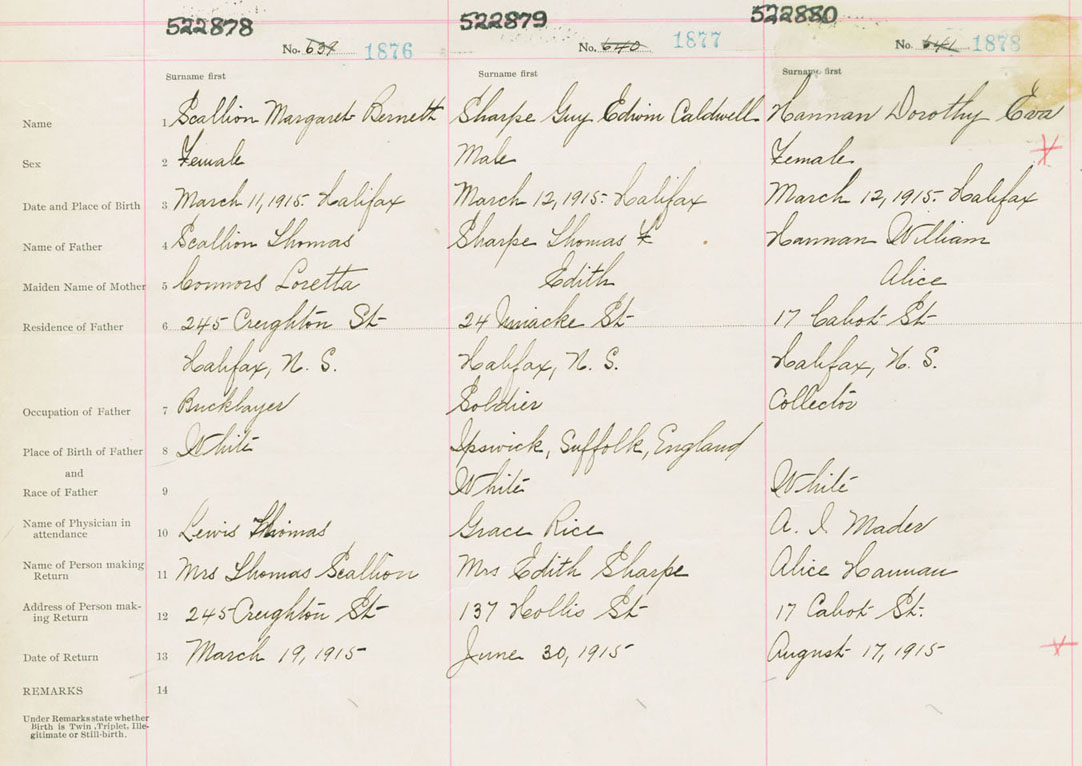 522878 522879 522880
No. 639 1876 No. 640 1877 No. 641 1878
Surname first Surname first Surname first
Name 1 Scallion Margaret Bernett Sharpe Guy Edwin Caldwell Hannan Dorothy Eva
Sex 2 Female Male Female
Date and Place of Birth 3 March 11, 1915. Halifax March 12, 1915. Halifax March 12, 1915. Halifax
Name of Father 4 Scallion Thomas Sharpe Thomas F Hannan William
Maiden Name of Mother 5 Connors Loretta Edith Alice
Residence of Father 6 245 Creighton St 24 Uniacke St 17 Cabot St
Halifax, N. S. Halifax, N. S. Halifax, N. S.
Occupation of Father 7 Bricklayer Soldier Collector
Place of Birth of Father 8 White Ipswick, Suffolk, England
and
Race of Father 9 White White
Name of Physician in
attendance 10 Lewis Thomas Grace Rice A. I. Mader
Name of Person making
Return 11 Mrs Thomas Scallion Mrs Edith Sharpe Alice Hannan
Address of Person mak-
ing Return 12 245 Creighton St 137 Hollis St 17 Cabot St.
Date of Return 13 March 19, 1915 June 30, 1915 August 17, 1915
REMARKS 14
Under Remarks state whether
Birth is Twin, Triplet, Ille-
gitimate or Still-birth.